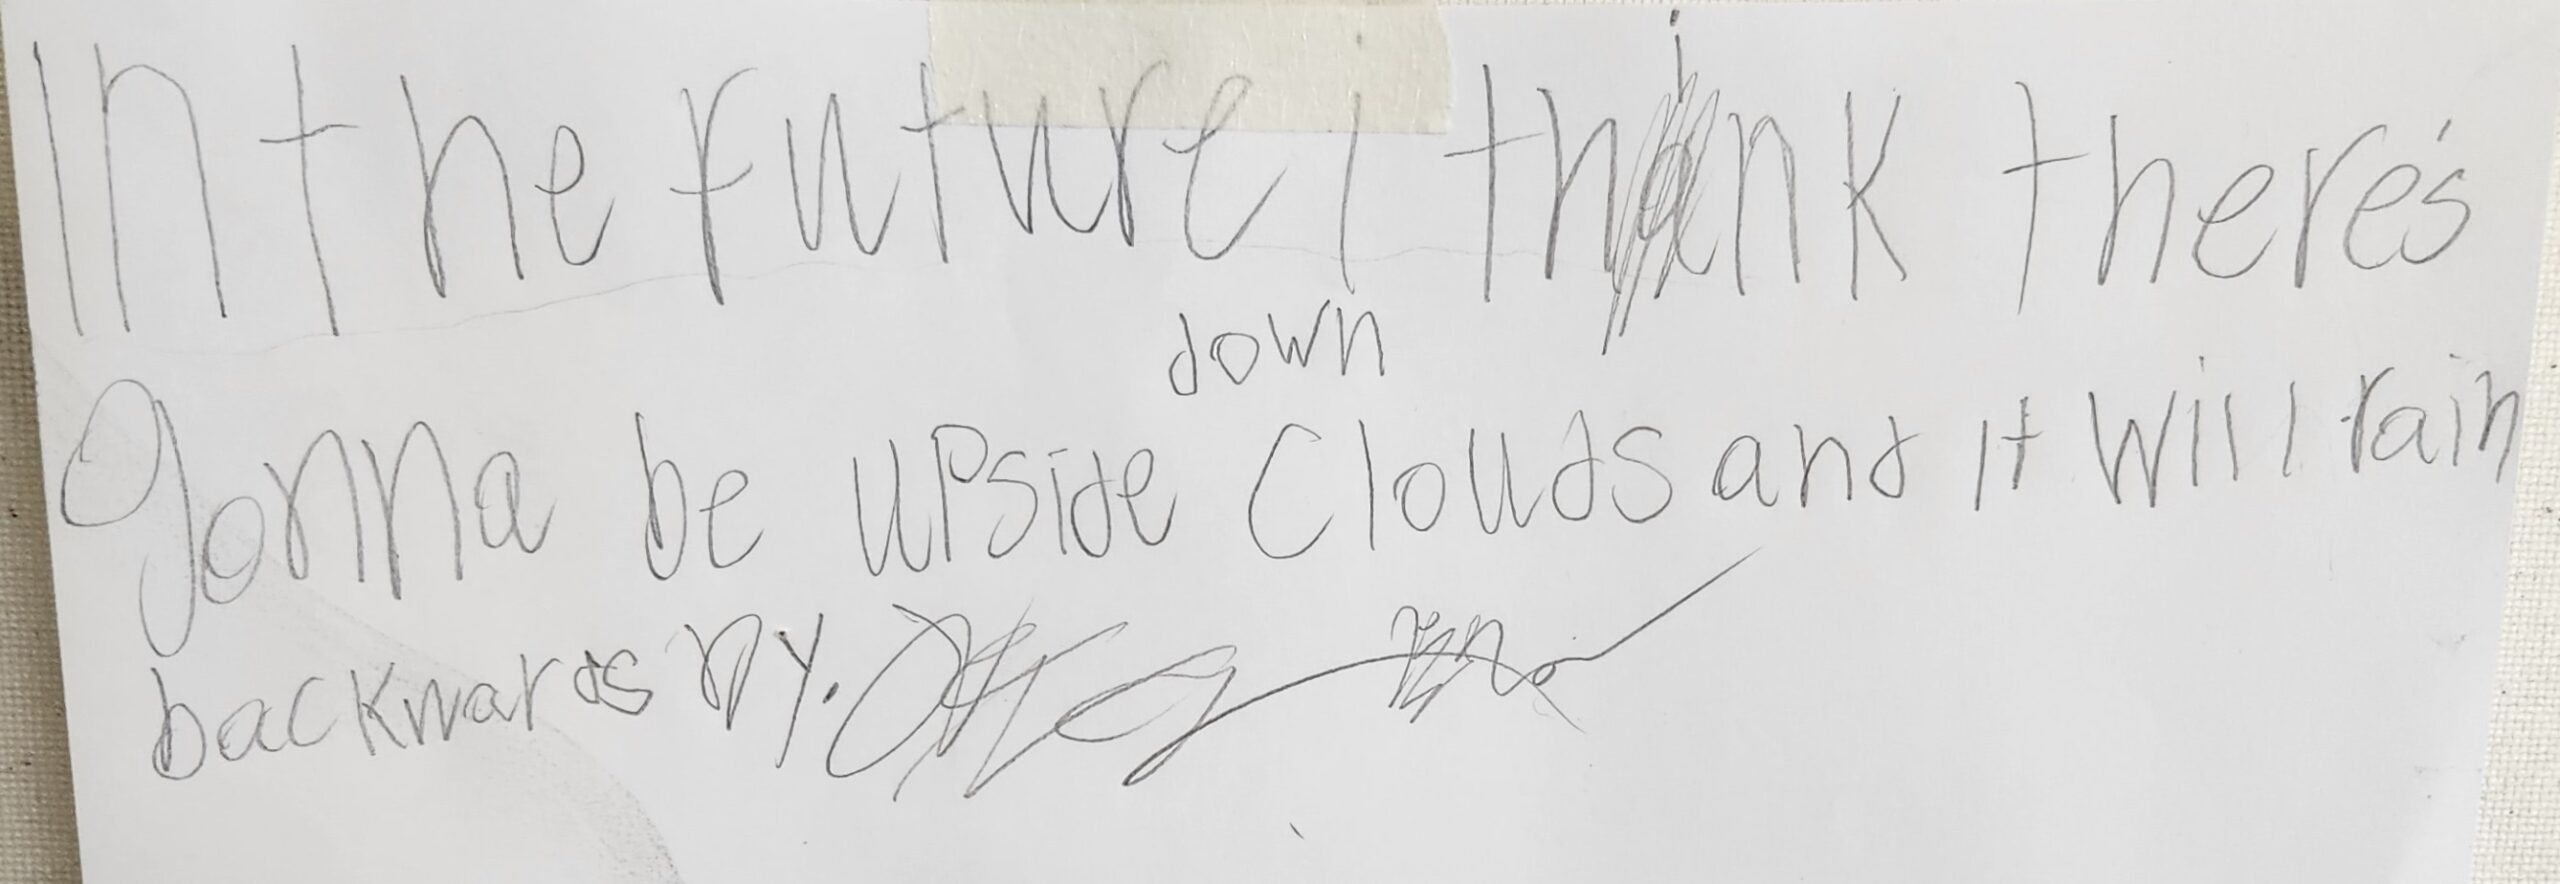 In the future i think there's
down
gonna be upside clouds and it will rain
backwards by.